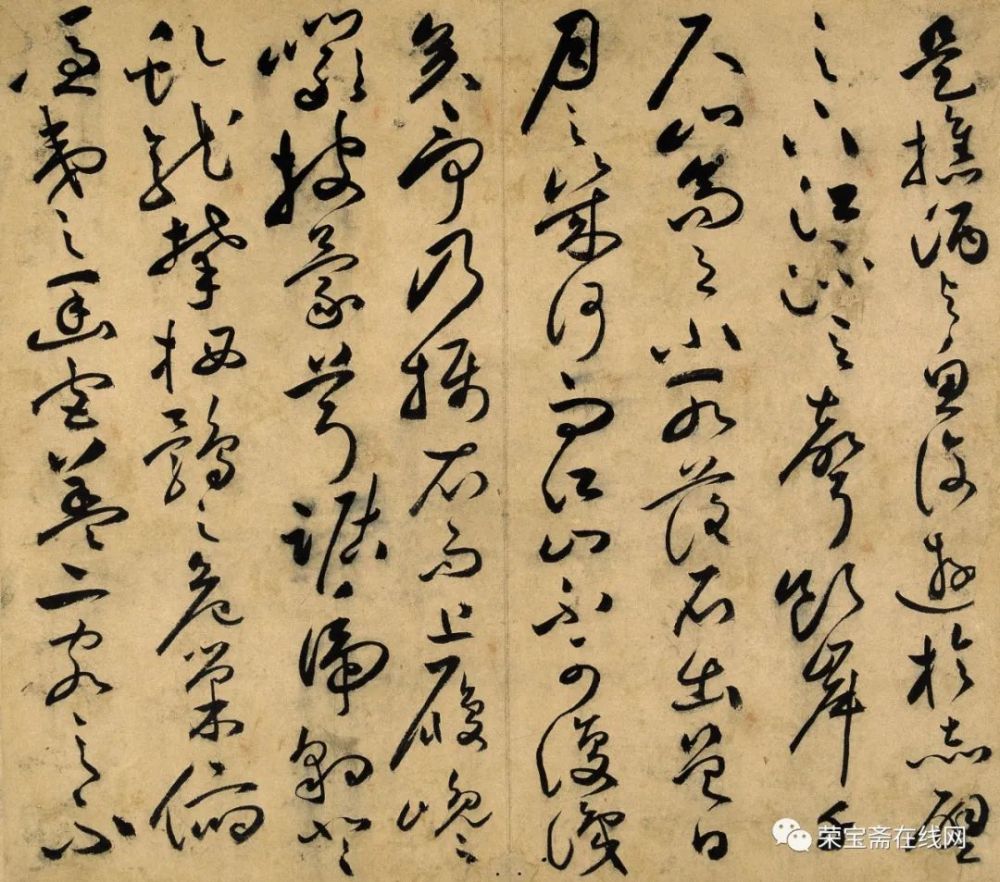 是攜酒与魚復遊於赤壁
之下江流有聲斷岸千
尺山高月小水落石出曾日
月之幾何而江山不可復識
矣予乃攝衣而上履巉
巖披蒙茸踞虎豹登
虬龍攀栖鶻之危巢俯
馮夷之幽宮蓋二客之不
荣宝斋在线网